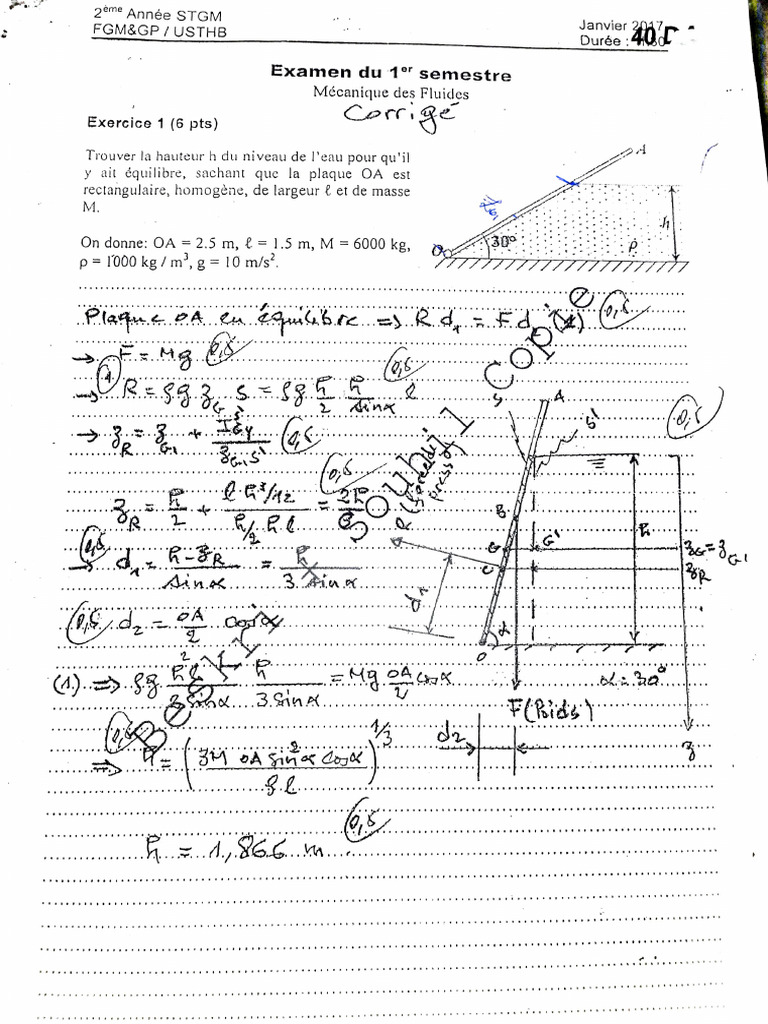 2ème Année STGM
FGM&GP / USTHB
Janvier 2017
Durée :
40
Examen du 1er semestre
Mécanique des Fluides
Corrigé
Exercice 1 (6 pts)
Trouver la hauteur h du niveau de l'eau pour qu'il
y ait équilibre, sachant que la plaque OA est
rectangulaire, homogène, de largeur ℓ et de masse
M.
On donne: OA = 2.5 m, ℓ = 1.5 m, M = 6000 kg,
ρ = 1000 kg / m³, g = 10 m/s².
A
h
O
30°
ρ
Plaque OA en équilibre => R d₁ = F d₂ (1) 0,5
→ F = Mg 0,5
→ R = ρg z_G S = ρg h/2 h/sinα ℓ 0,5
→ z_R = z_G' + I_Gy/(z_G' S') 0,5
z_R = h/2 + (ℓ h³/12)/(h/2 h ℓ) = 2h/3 0,5
→ d₁ = (h - z_R)/sinα = h/(3 sinα) 0,5
d₂ = OA/2 cosα 0,5
(1) => ρg h²ℓ/(2 sinα) h/(3 sinα) = Mg OA/2 cosα
=> h = (3M OA sin²α cosα/(ρ ℓ))^1/3 0,5
h = 1,866 m 0,5
Souheil Copie
A
S
S'
0,5
B
G
G'
C
h
z_G = z_G'
z_R
d₁
α
O
α = 30°
F (Poids)
d₂
z